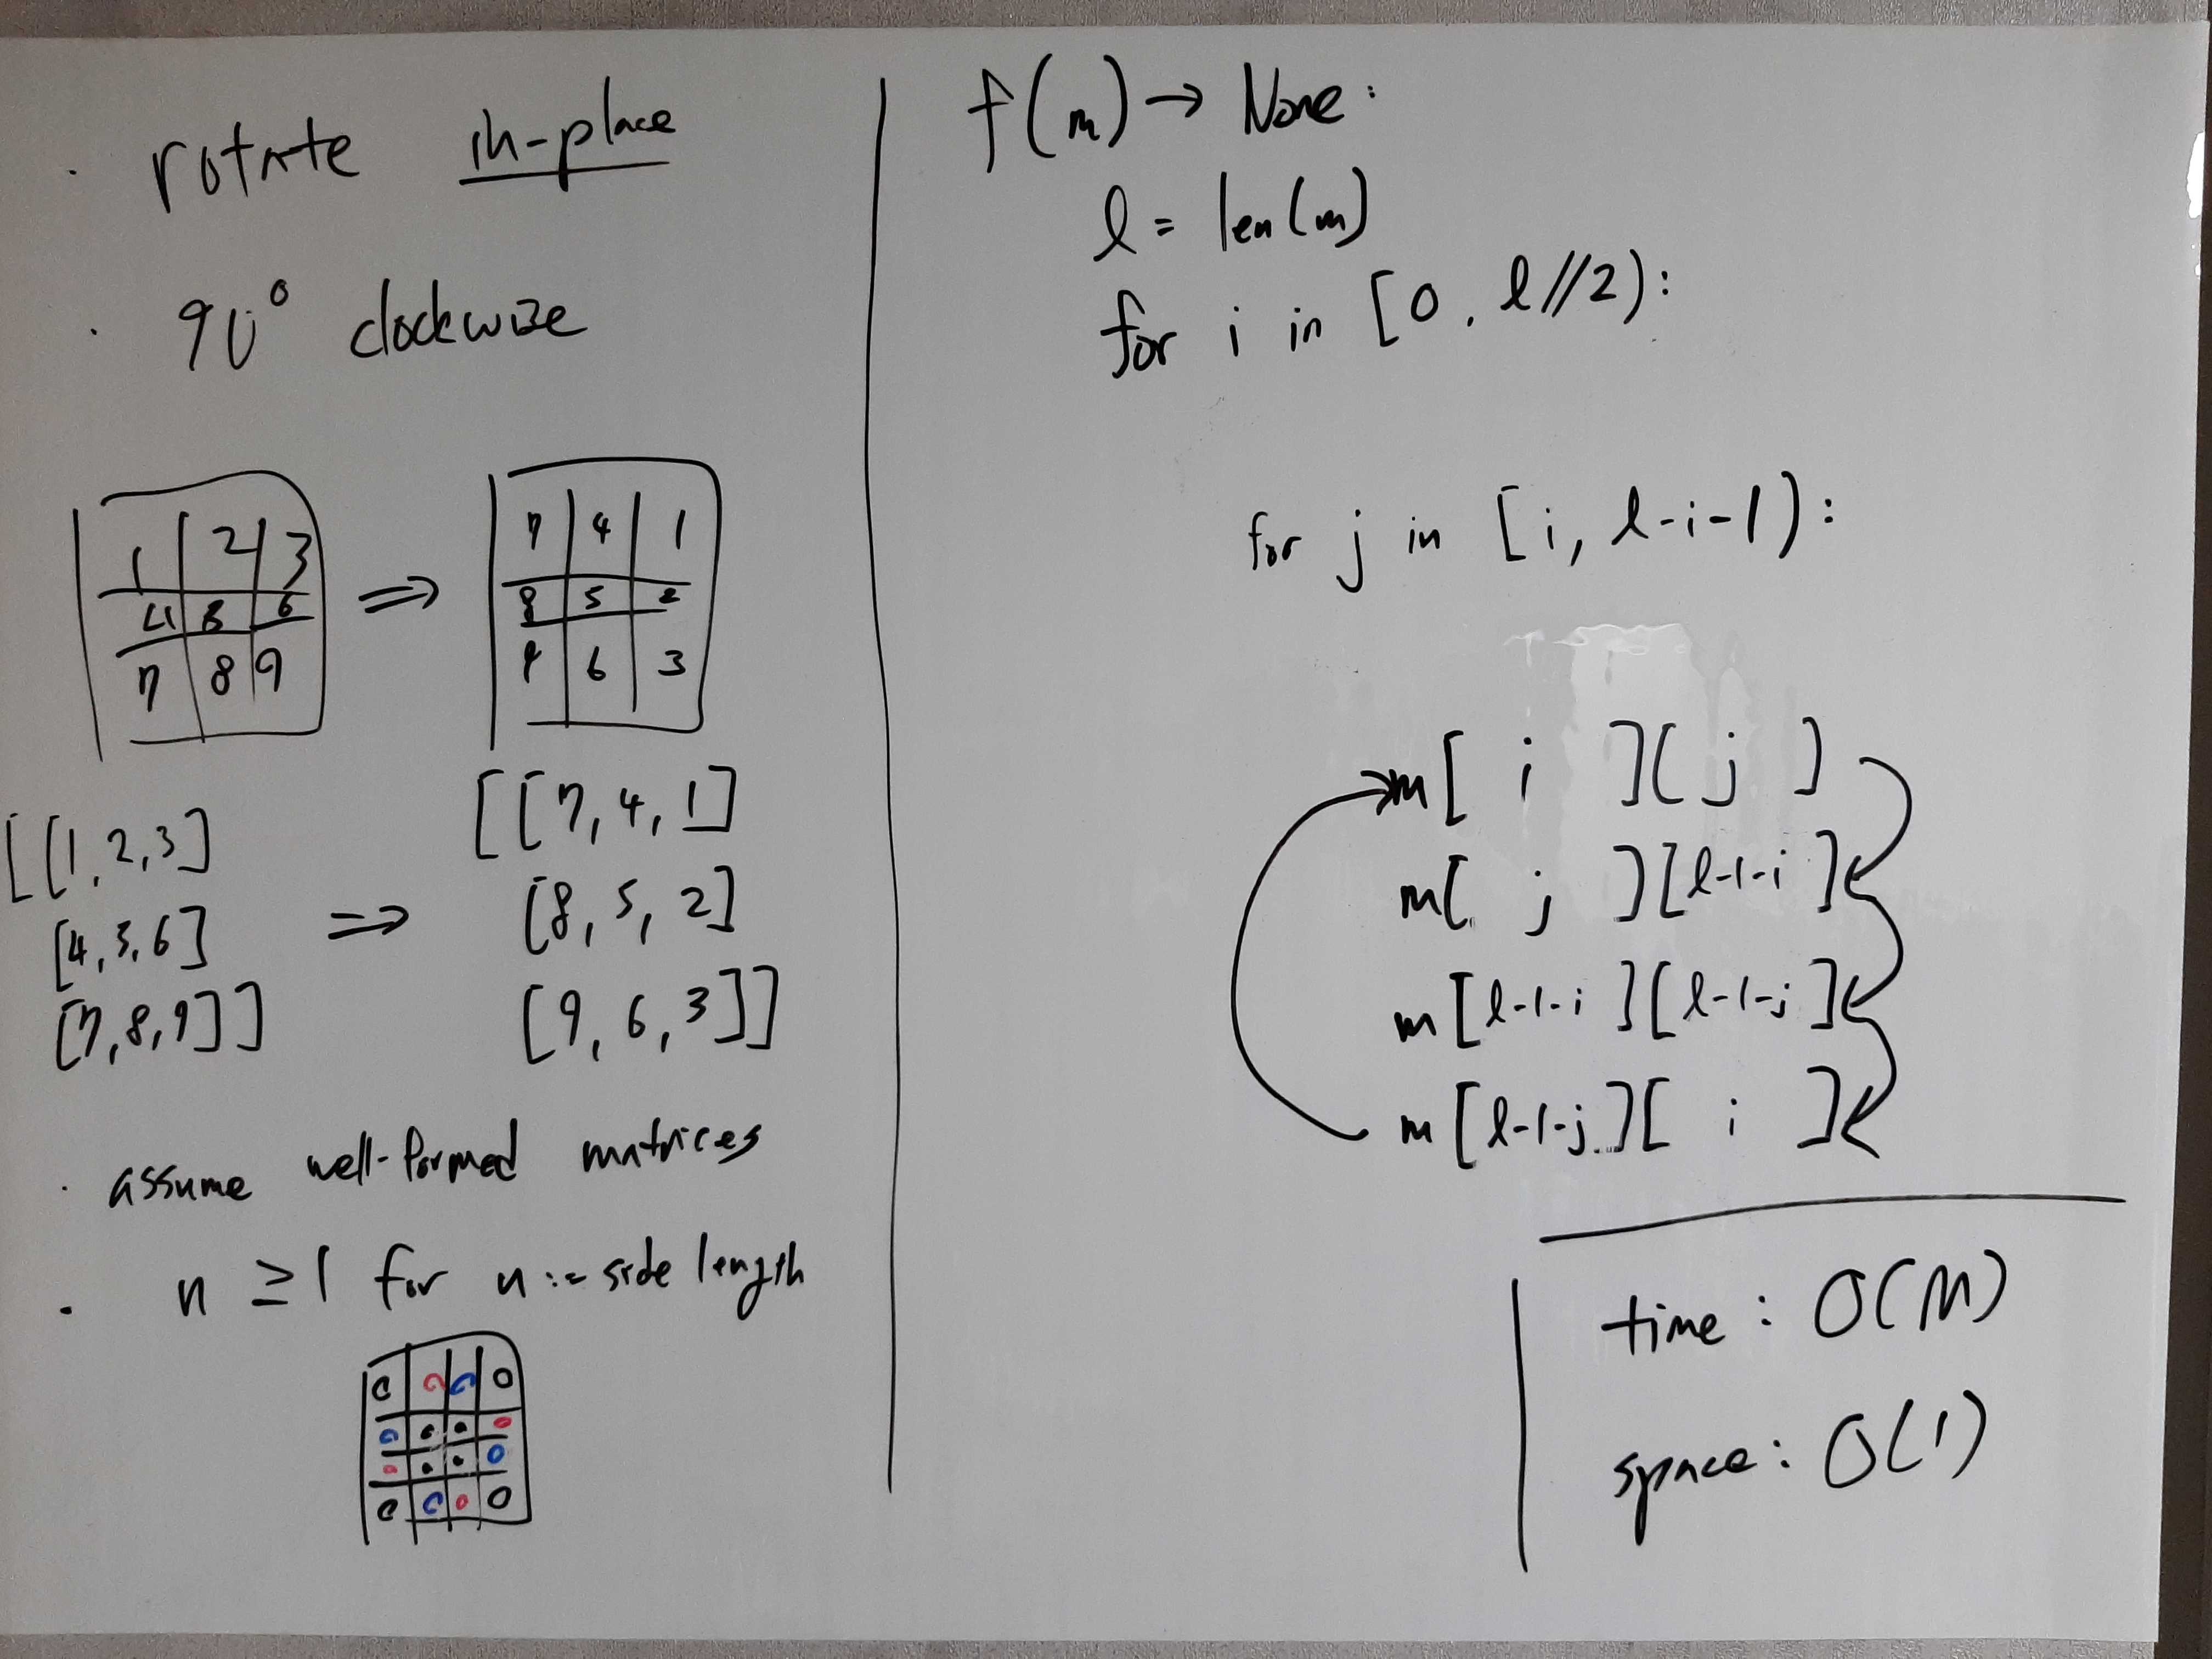 · rotate in-place
· 90° clockwise
1 2 3
4 5 6
7 8 9
⇒
7 4 1
8 5 2
9 6 3
[[1,2,3]
[4,5,6]
[7,8,9]]
⇒
[[7,4,1]
[8,5,2]
[9,6,3]]
· assume well-formed matrices
· n ≥ 1 for n := side length
f(m) → None:
l = len(m)
for i in [0, l//2):
for j in [i, l-i-1):
m[ i ][ j ]
m[ j ][l-1-i]
m[l-1-i][l-1-j]
m[l-1-j][ i ]
time: O(M)
space: O(1)